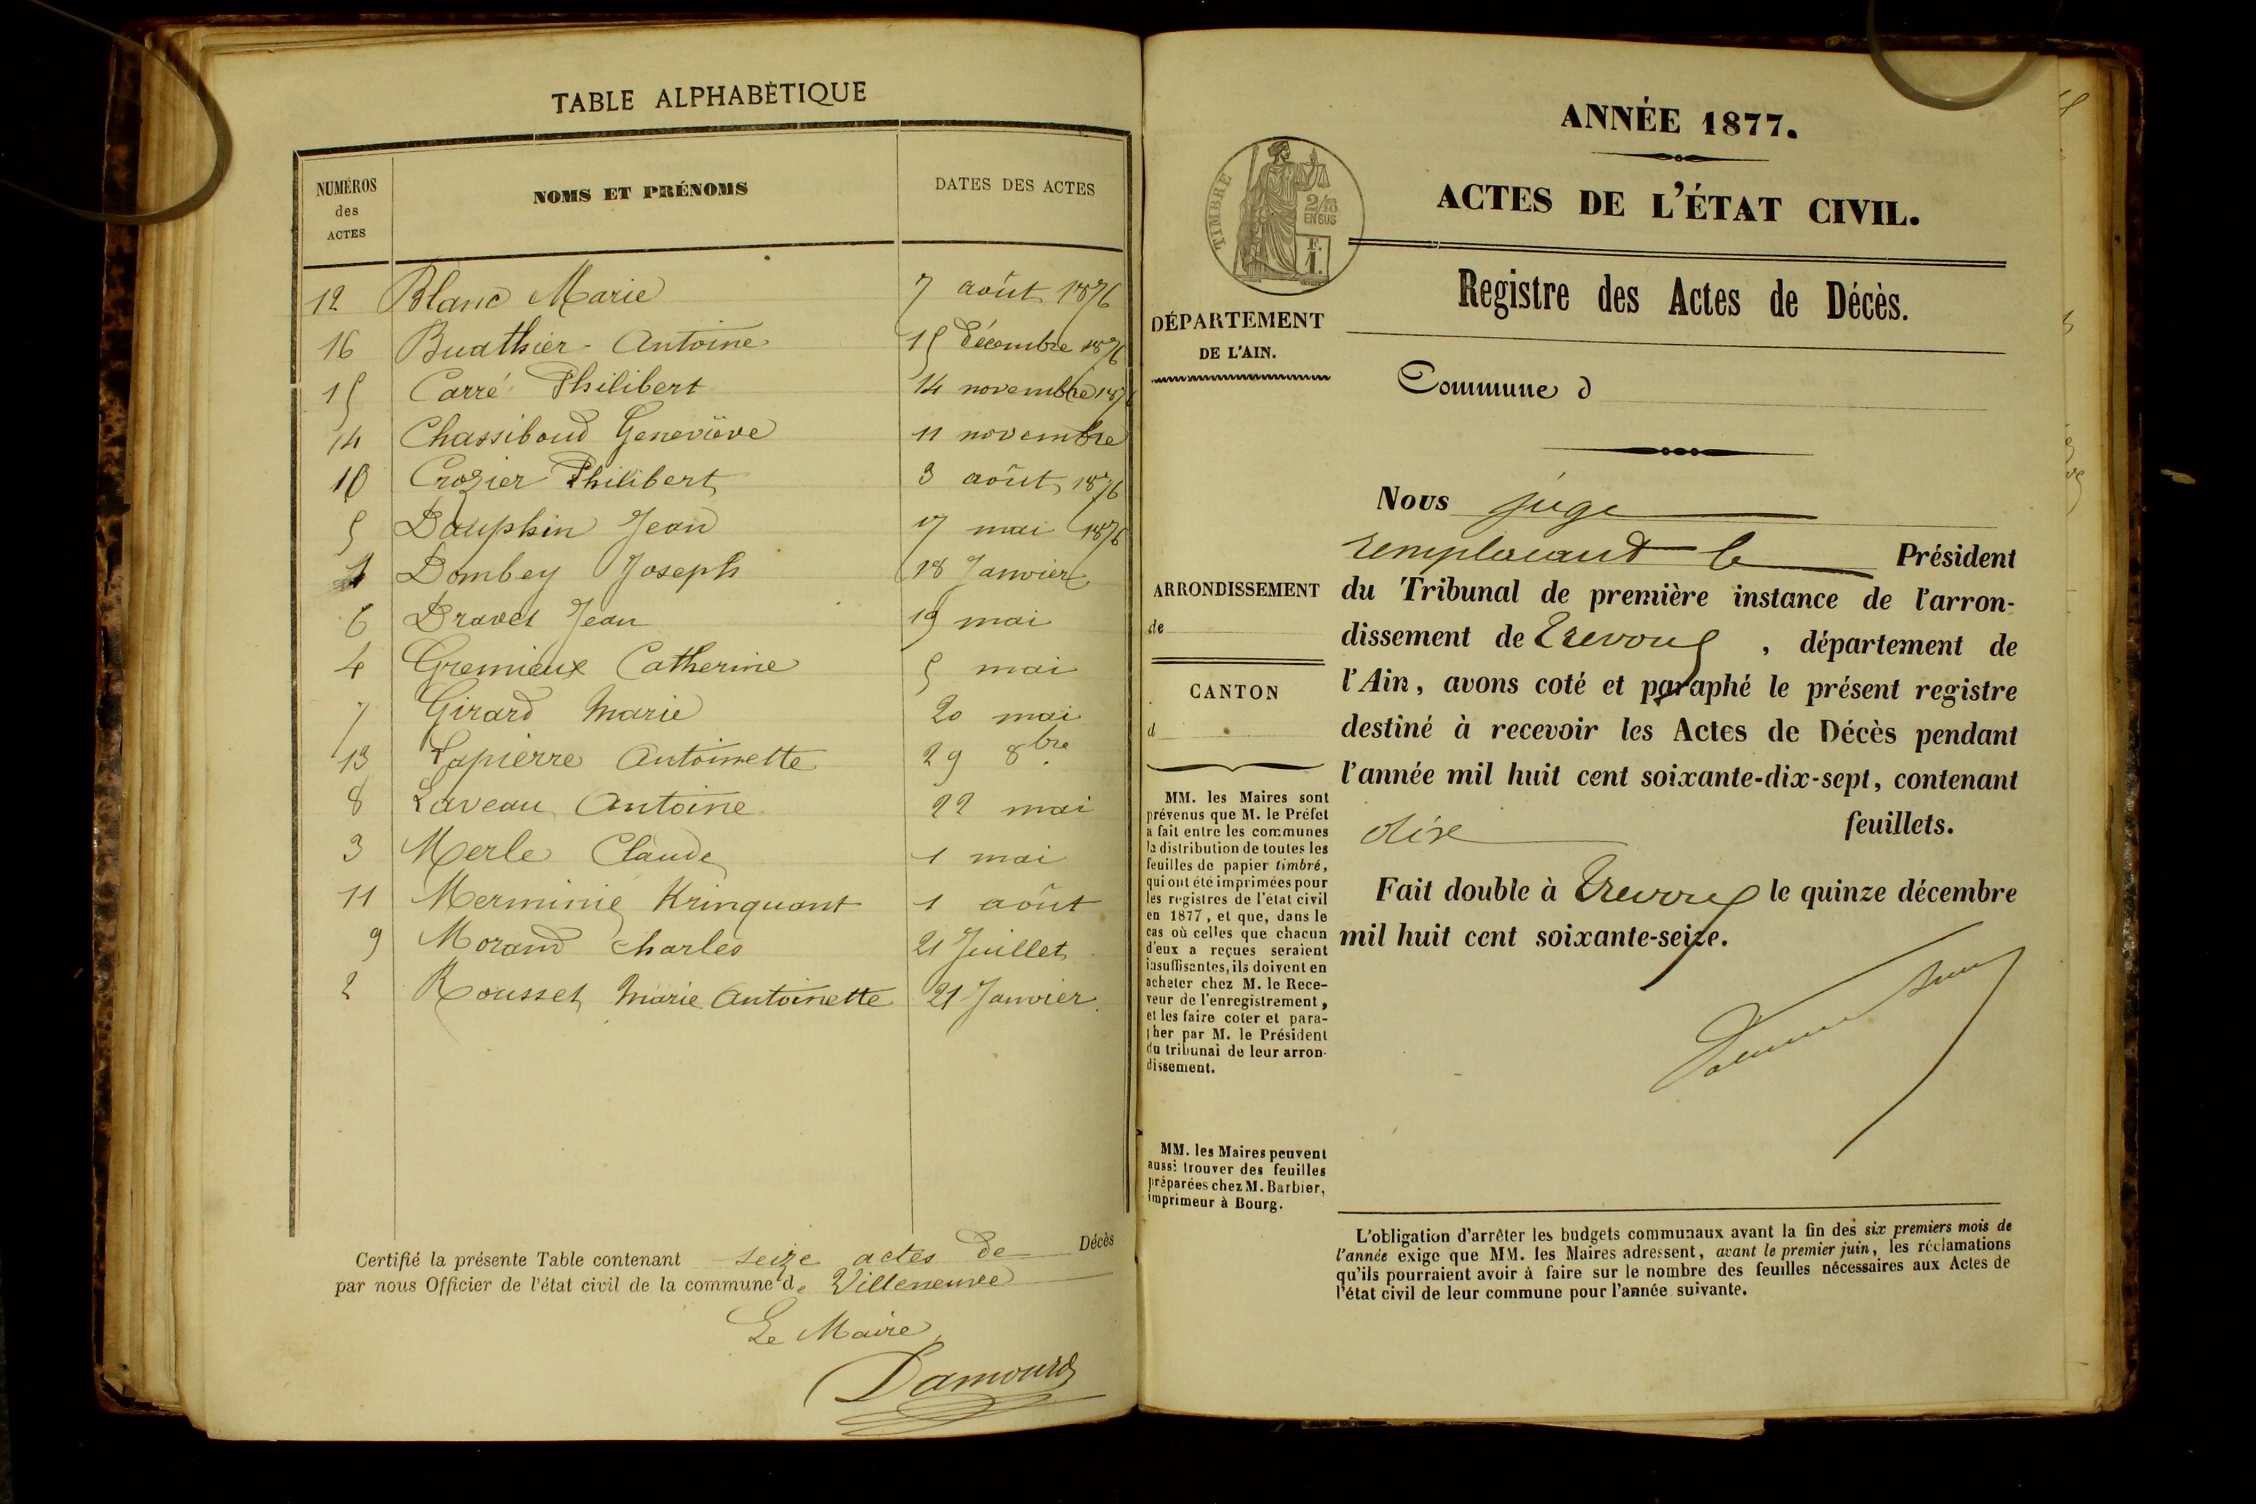 TABLE ALPHABÉTIQUE
NUMÉROS des ACTES
NOMS ET PRÉNOMS
DATES DES ACTES
12 Blanc Marie 7 août 1876
16 Buathier - Antoine 15 décembre 1876
15 Carré Philibert 14 novembre 1876
14 Chassiboud Geneviève 11 novembre
10 Crozier Philibert 3 août 1876
5 Dauphin Jean 17 mai 1876
1 Dombey Joseph 18 Janvier
6 Dravet Jean 19 mai
4 Gremieux Catherine 5 mai
7 Girard Marie 20 mai
13 Lapierre Antoinette 29 8bre
8 Laveau Antoine 22 mai
3 Merle Claude 1 mai
11 Merminie 1 août
9 Morand Charles 21 Juillet
2 Rousset Marie Antoinette 21 Janvier
Certifié la présente Table contenant seize actes de Décès
par nous Officier de l'état civil de la commune de Villeneuve
Le Maire
Damour
ANNÉE 1877.
ACTES DE L'ÉTAT CIVIL.
TIMBRE
2/10
EN SUS
F.
1.
Registre des Actes de Décès.
DÉPARTEMENT
DE L'AIN.
Commune d
ARRONDISSEMENT
de
CANTON
d
MM. les Maires sont
prévenus que M. le Préfet
a fait entre les communes
la distribution de toutes les
feuilles de papier timbré,
qui ont été imprimées pour
les registres de l'état civil
en 1877, et que, dans le
cas où celles que chacun
d'eux a reçues seraient
insuffisantes, ils doivent en
acheter chez M. le Rece-
veur de l'enregistrement,
et les faire coter et para-
pher par M. le Président
du tribunal de leur arron-
dissement.
MM. les Maires peuvent
aussi trouver des feuilles
préparées chez M. Barbier,
imprimeur à Bourg.
Nous juge
remplacant le Président
du Tribunal de première instance de l'arron-
dissement de Trevoux, département de
l'Ain, avons coté et paraphé le présent registre
destiné à recevoir les Actes de Décès pendant
l'année mil huit cent soixante-dix-sept, contenant
dix feuillets.
Fait double à Trevoux le quinze décembre
mil huit cent soixante-seize.
L'obligation d'arrêter les budgets communaux avant la fin des six premiers mois de
l'année exige que MM. les Maires adressent, avant le premier juin, les réclamations
qu'ils pourraient avoir à faire sur le nombre des feuilles nécessaires aux Actes de
l'état civil de leur commune pour l'année suivante.